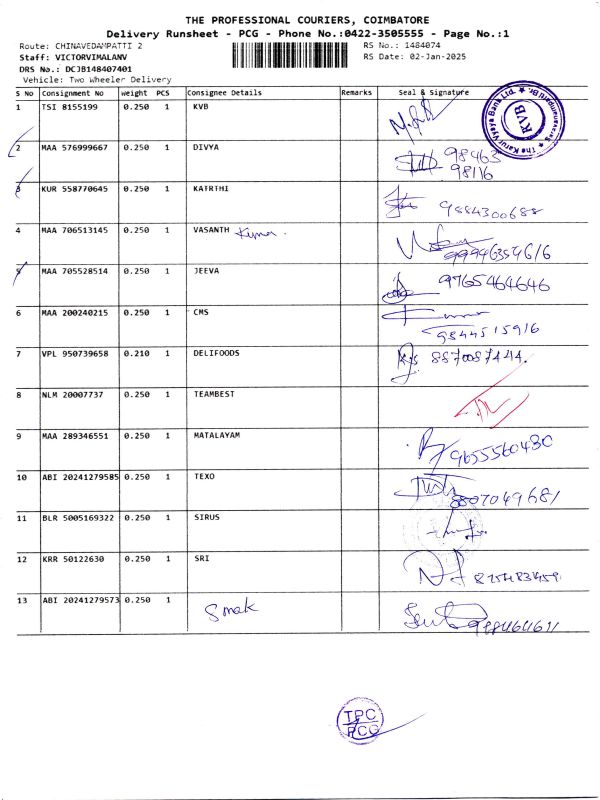 THE PROFESSIONAL COURIERS, COIMBATORE
Delivery Runsheet - PCG - Phone No.:0422-3505555 - Page No.:1
Route: CHINAVEDAMPATTI 2 RS No.: 1484074
Staff: VICTORVIMALANV RS Date: 02-Jan-2025
DRS No.: DCJB148407401
Vehicle: Two Wheeler Delivery
S No Consignment No Weight PCS Consignee Details Remarks Seal & Signature
1 TSI 8155199 0.250 1 KVB
The Karur Vysya Bank Ltd. KVB
2 MAA 576999667 0.250 1 DIVYA 98463
98116
3 KUR 558770645 0.250 1 KAIRTHI 9884300688
4 MAA 706513145 0.250 1 VASANTH Kumar.
5 MAA 705528514 0.250 1 JEEVA 9765464646
6 MAA 200240215 0.250 1 CMS 9844515916
7 VPL 950739658 0.210 1 DELIFOODS 8870087444.
8 NLM 20007737 0.250 1 TEAMBEST
9 MAA 289346551 0.250 1 MATALAYAM 9655560480
10 ABI 20241279585 0.250 1 TEXO 8807049681
11 BLR 5005169322 0.250 1 SIRUS
12 KRR 50122630 0.250 1 SRI
13 ABI 20241279573 0.250 1 Smak
TPC
PCG